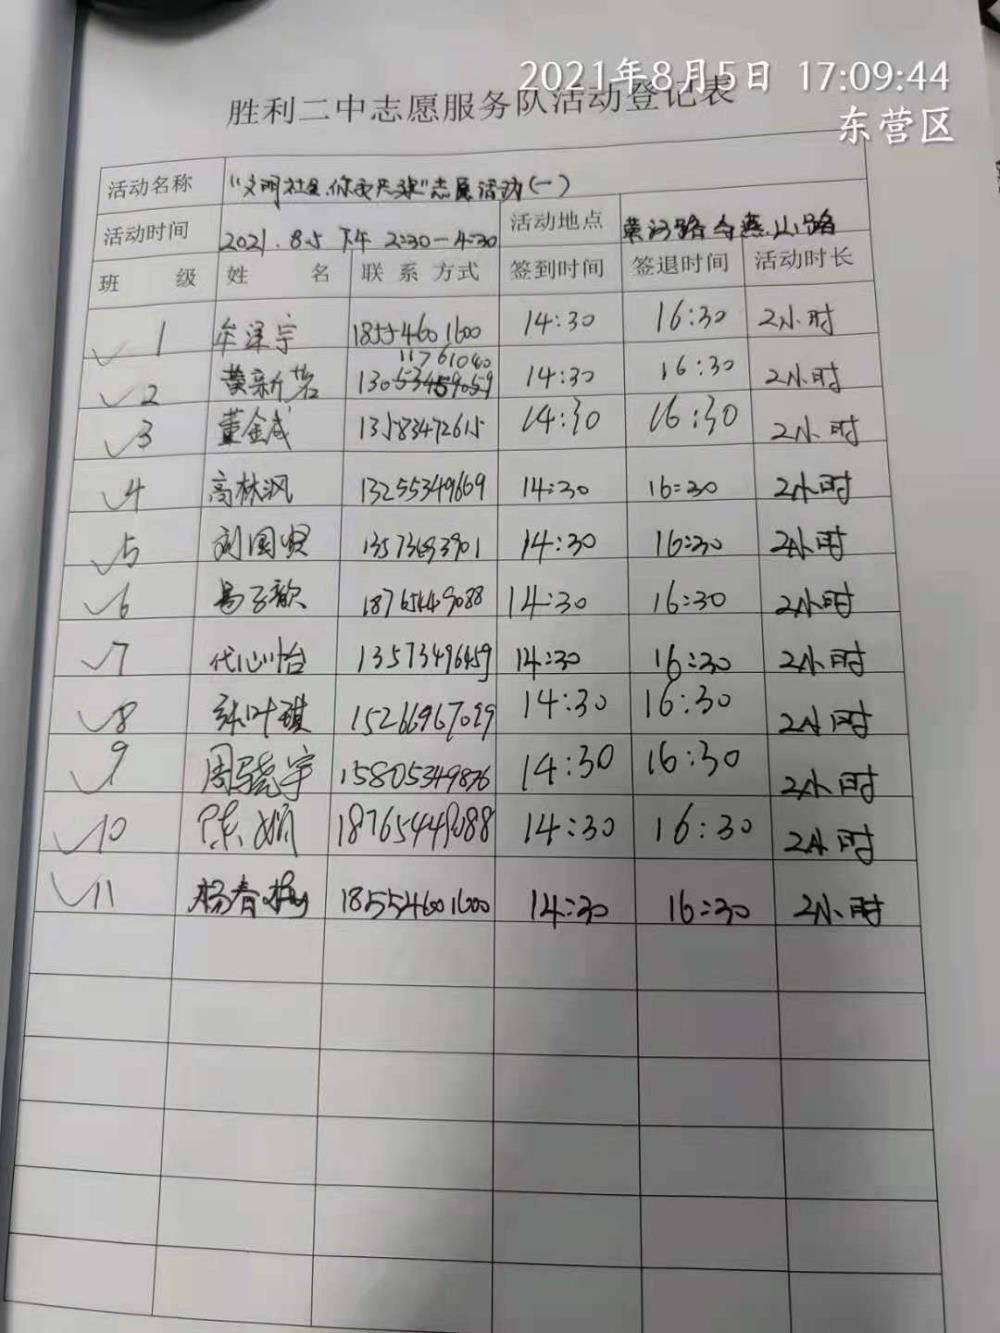 2021年8月5日 17:09:44
东营区
胜利二中志愿服务队活动登记表
活动名称 "文明社区,你我共建"志愿活动(一)
活动时间 2021.8.5 下午 2:30-4:30 活动地点 黄河路与燕山路
班 级 姓 名 联系方式 签到时间 签退时间 活动时长
1 牟泽宇 18554601600 14:30 16:30 2小时
11761040
2 黄新茗 14:30 16:30 2小时
3 董金成 13583472615 14:30 16:30 2小时
4 高林沨 13255349669 14:30 16:30 2小时
5 刘国 14:30 16:30 2小时
6 易子歆 18765449088 14:30 16:30 2小时
7 代心怡 13573496459 14:30 16:30 2小时
8 叶琪 14:30 16:30 2小时
9 周骁宇 15805349876 14:30 16:30 2小时
10 陈娟 18765449088 14:30 16:30 2小时
11 杨春梅 18554601600 14:30 16:30 2小时